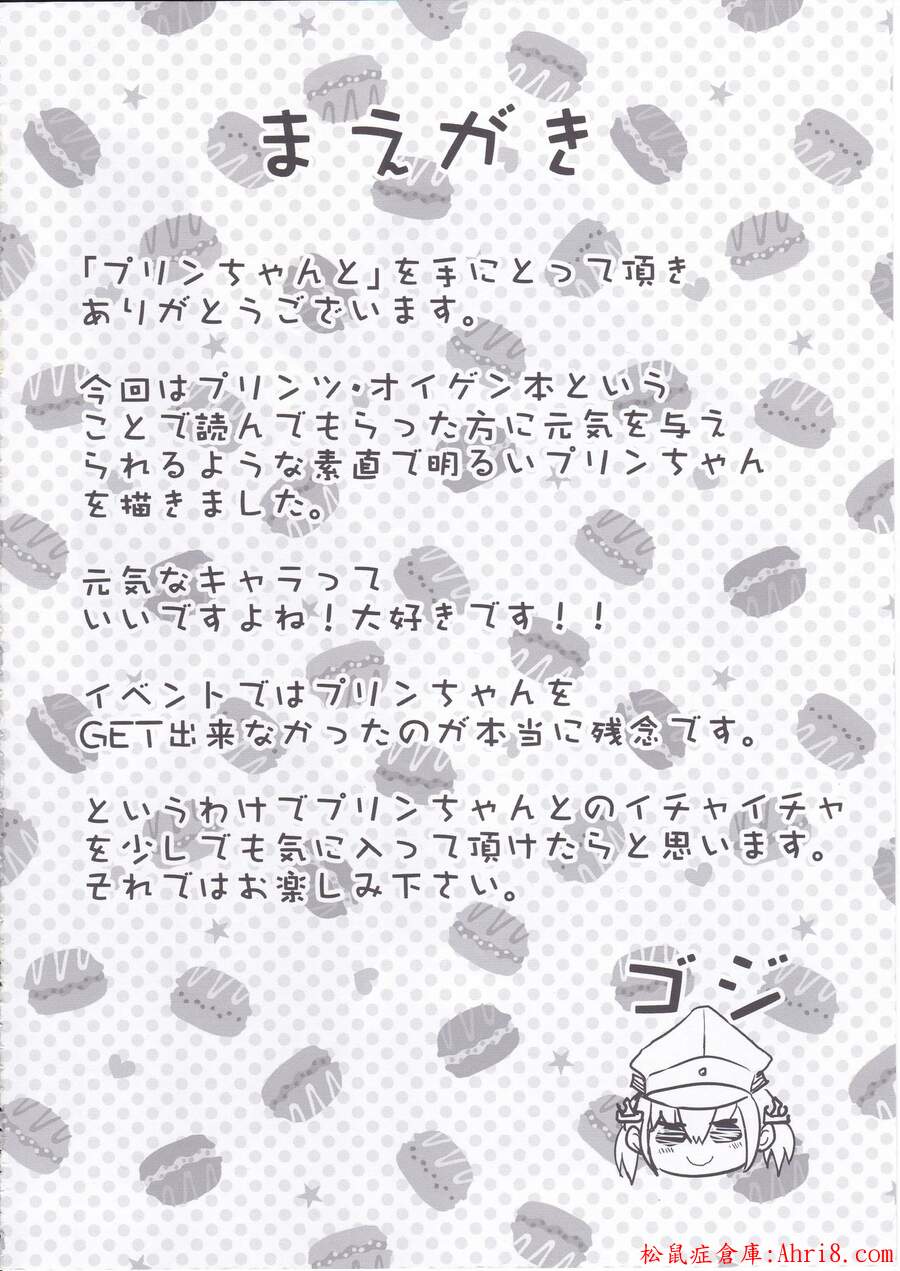 まえがき
「プリンちゃんと」を手にとって頂き
ありがとうございます。
今回はプリンツ・オイゲン本という
ことで読んでもらった方に元気を与え
られるような素直で明るいプリンちゃん
を描きました。
元気なキャラって
いいですよね！大好きです！！
イベントではプリンちゃんを
GET出来なかったのが本当に残念です。
というわけでプリンちゃんとのイチャイチャ
を少しでも気に入って頂けたらと思います。
それではお楽しみ下さい。
ゴジ
松鼠症倉庫:Ahri8.com